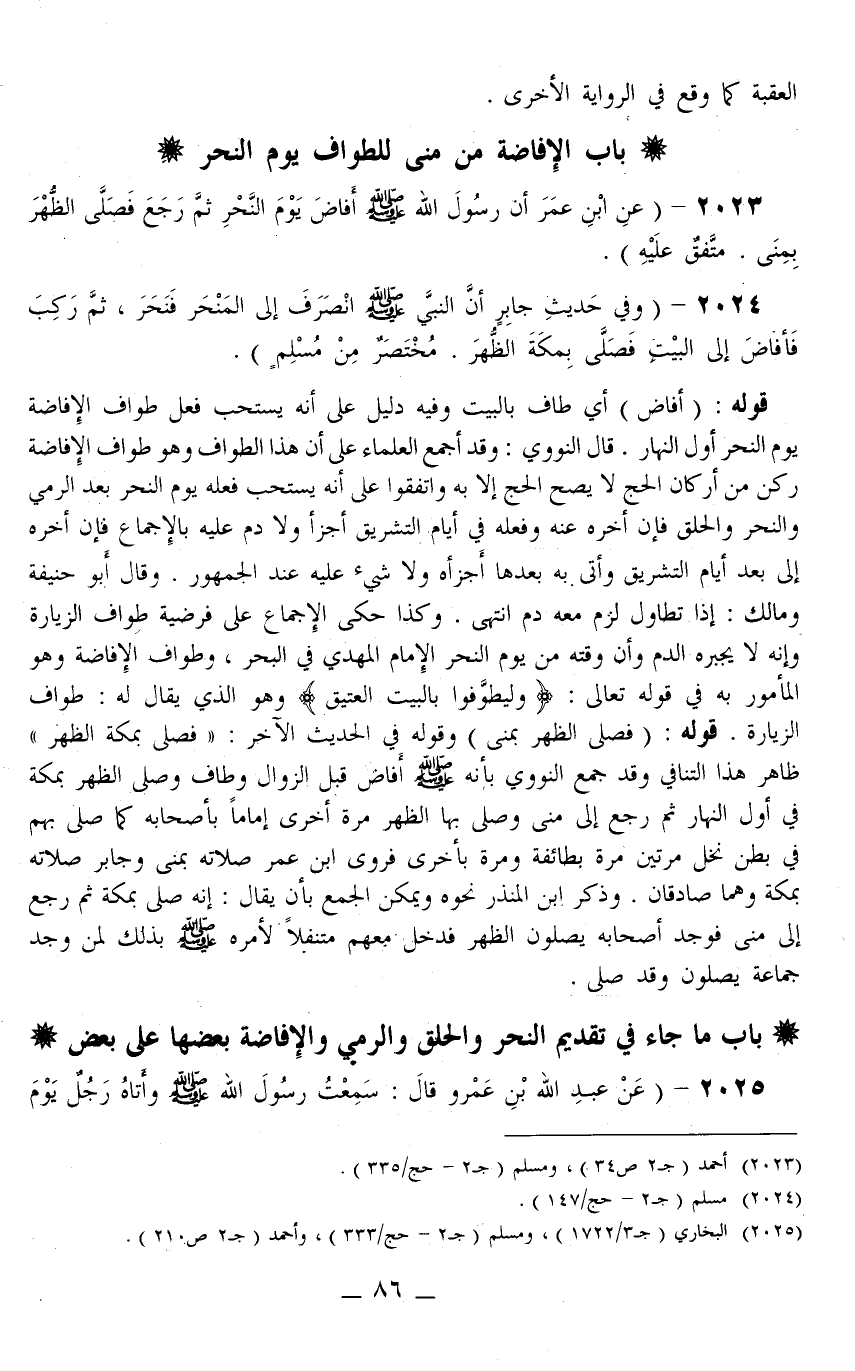 العقبة كما وقع في الرواية الأخرى .
باب الإفاضة من منى للطواف يوم النحر
٢٠٢٣ – ( عنِ ابْنِ عمَرَ أن رسُولَ الله ﷺ أَفاضَ يَوْمَ النَّحْرِ ثمَّ رَجَعَ فَصَلَّى الظُّهْرَ
بِمِنَى . متَّفقٌ علَيْهِ ) .
٢٠٢٤ – ( وفي حَديثِ جابِرٍ أنَّ النبيَّ ﷺ انْصَرَفَ إلى المَنْحَر فَنَحَرَ ، ثمَّ رَكِبَ
فَأفاضَ إلى البيْتِ فَصَلَّى بِمكَةَ الظُّهرَ . مُخْتَصَرٌ مِنْ مُسْلِمٍ ) .
قوله : ( أفاض ) أي طاف بالبيت وفيه دليل على أنه يستحب فعل طواف الإفاضة
يوم النحر أول النهار . قال النووي : وقد أجمع العلماء على أن هذا الطواف وهو طواف الإفاضة
ركن من أركان الحج لا يصح الحج إلا به واتفقوا على أنه يستحب فعله يوم النحر بعد الرمي
والنحر والحلق فإن أخره عنه وفعله في أيام التشريق أجزأ ولا دم عليه بالإجماع فإن أخره
إلى بعد أيام التشريق وأتى به بعدها أجزأه ولا شيء عليه عند الجمهور . وقال أبو حنيفة
ومالك : إذا تطاول لزم معه دم انتهى . وكذا حكى الإجماع على فرضية طواف الزيارة
وإنه لا يجبره الدم وأن وقته من يوم النحر الإمام المهدي في البحر ، وطواف الإفاضة وهو
المأمور به في قوله تعالى : ﴿ وليطوَّفوا بالبيت العتيق ﴾ وهو الذي يقال له : طواف
الزيارة . قوله : ( فصلى الظهر بمنى ) وقوله في الحديث الآخر : « فصلى بمكة الظهر »
ظاهر هذا التنافي وقد جمع النووي بأنه ﷺ أفاض قبل الزوال وطاف وصلى الظهر بمكة
في أول النهار ثم رجع إلى منى وصلى بها الظهر مرة أخرى إماماً بأصحابه كما صلى بهم
في بطن نخل مرتين مرة بطائفة ومرة بأخرى فروى ابن عمر صلاته بمنى وجابر صلاته
بمكة وهما صادقان . وذكر ابن المنذر نحوه ويمكن الجمع بأن يقال : إنه صلى بمكة ثم رجع
إلى منى فوجد أصحابه يصلون الظهر فدخل معهم متنفلاً لأمره ﷺ بذلك لمن وجد
جماعة يصلون وقد صلى .
باب ما جاء في تقديم النحر والحلق والرمي والإفاضة بعضها على بعض
٢٠٢٥ – ( عَنْ عبدِ الله بْنِ عَمْرو قالَ : سَمِعْتُ رسُولَ الله ﷺ وأَتاهُ رَجُلٌ يَوْمَ
(٢٠٢٣) أحمد ( جـ٢ ص٣٤ ) ، ومسلم ( جـ٢ – حج/٣٣٥ ) .
(٢٠٢٤) مسلم ( جـ٢ – حج/١٤٧ ) .
(٢٠٢٥) البخاري ( جـ٣/١٧٢٢ ) ، ومسلم ( جـ٢ – حج/٣٣٣ ) ، وأحمد ( جـ٢ ص٢١٠ ) .
— ٨٦ —